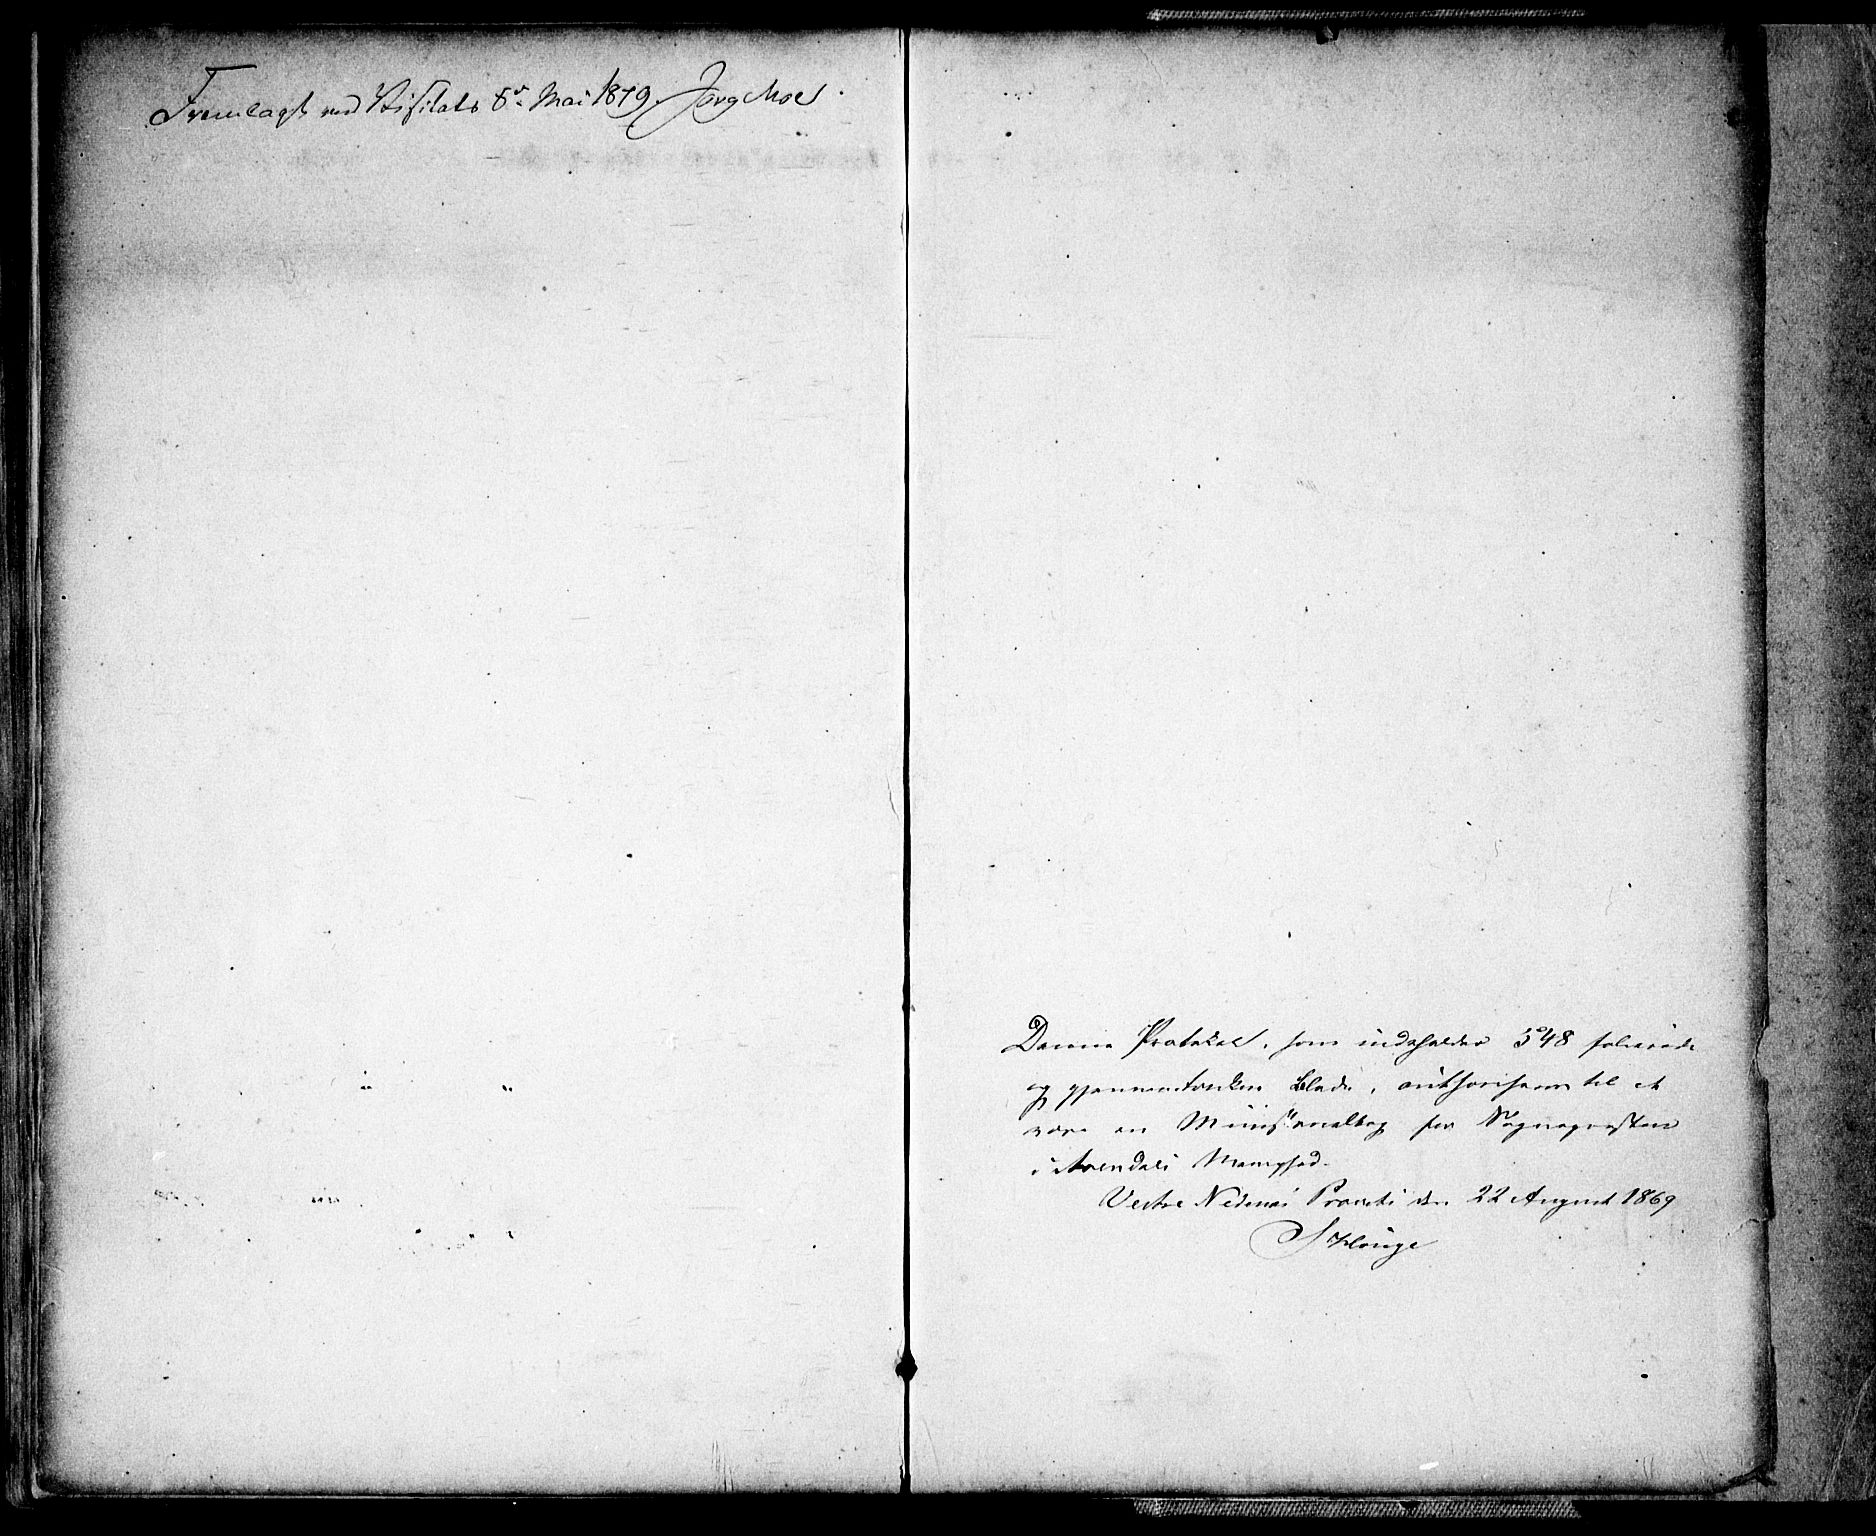 Fremlagt ved Visitats 8de Mai 1879. Jørg Moe.
Denne Protokol, som indeholder 548 folierede
og gjennemtrukne Blade, authoriseres til at
være en Ministerialbog for Sognepresten
i Arendals Menighed.
Vestre Nedenæs Provsti den 22 August 1869
S Hauge